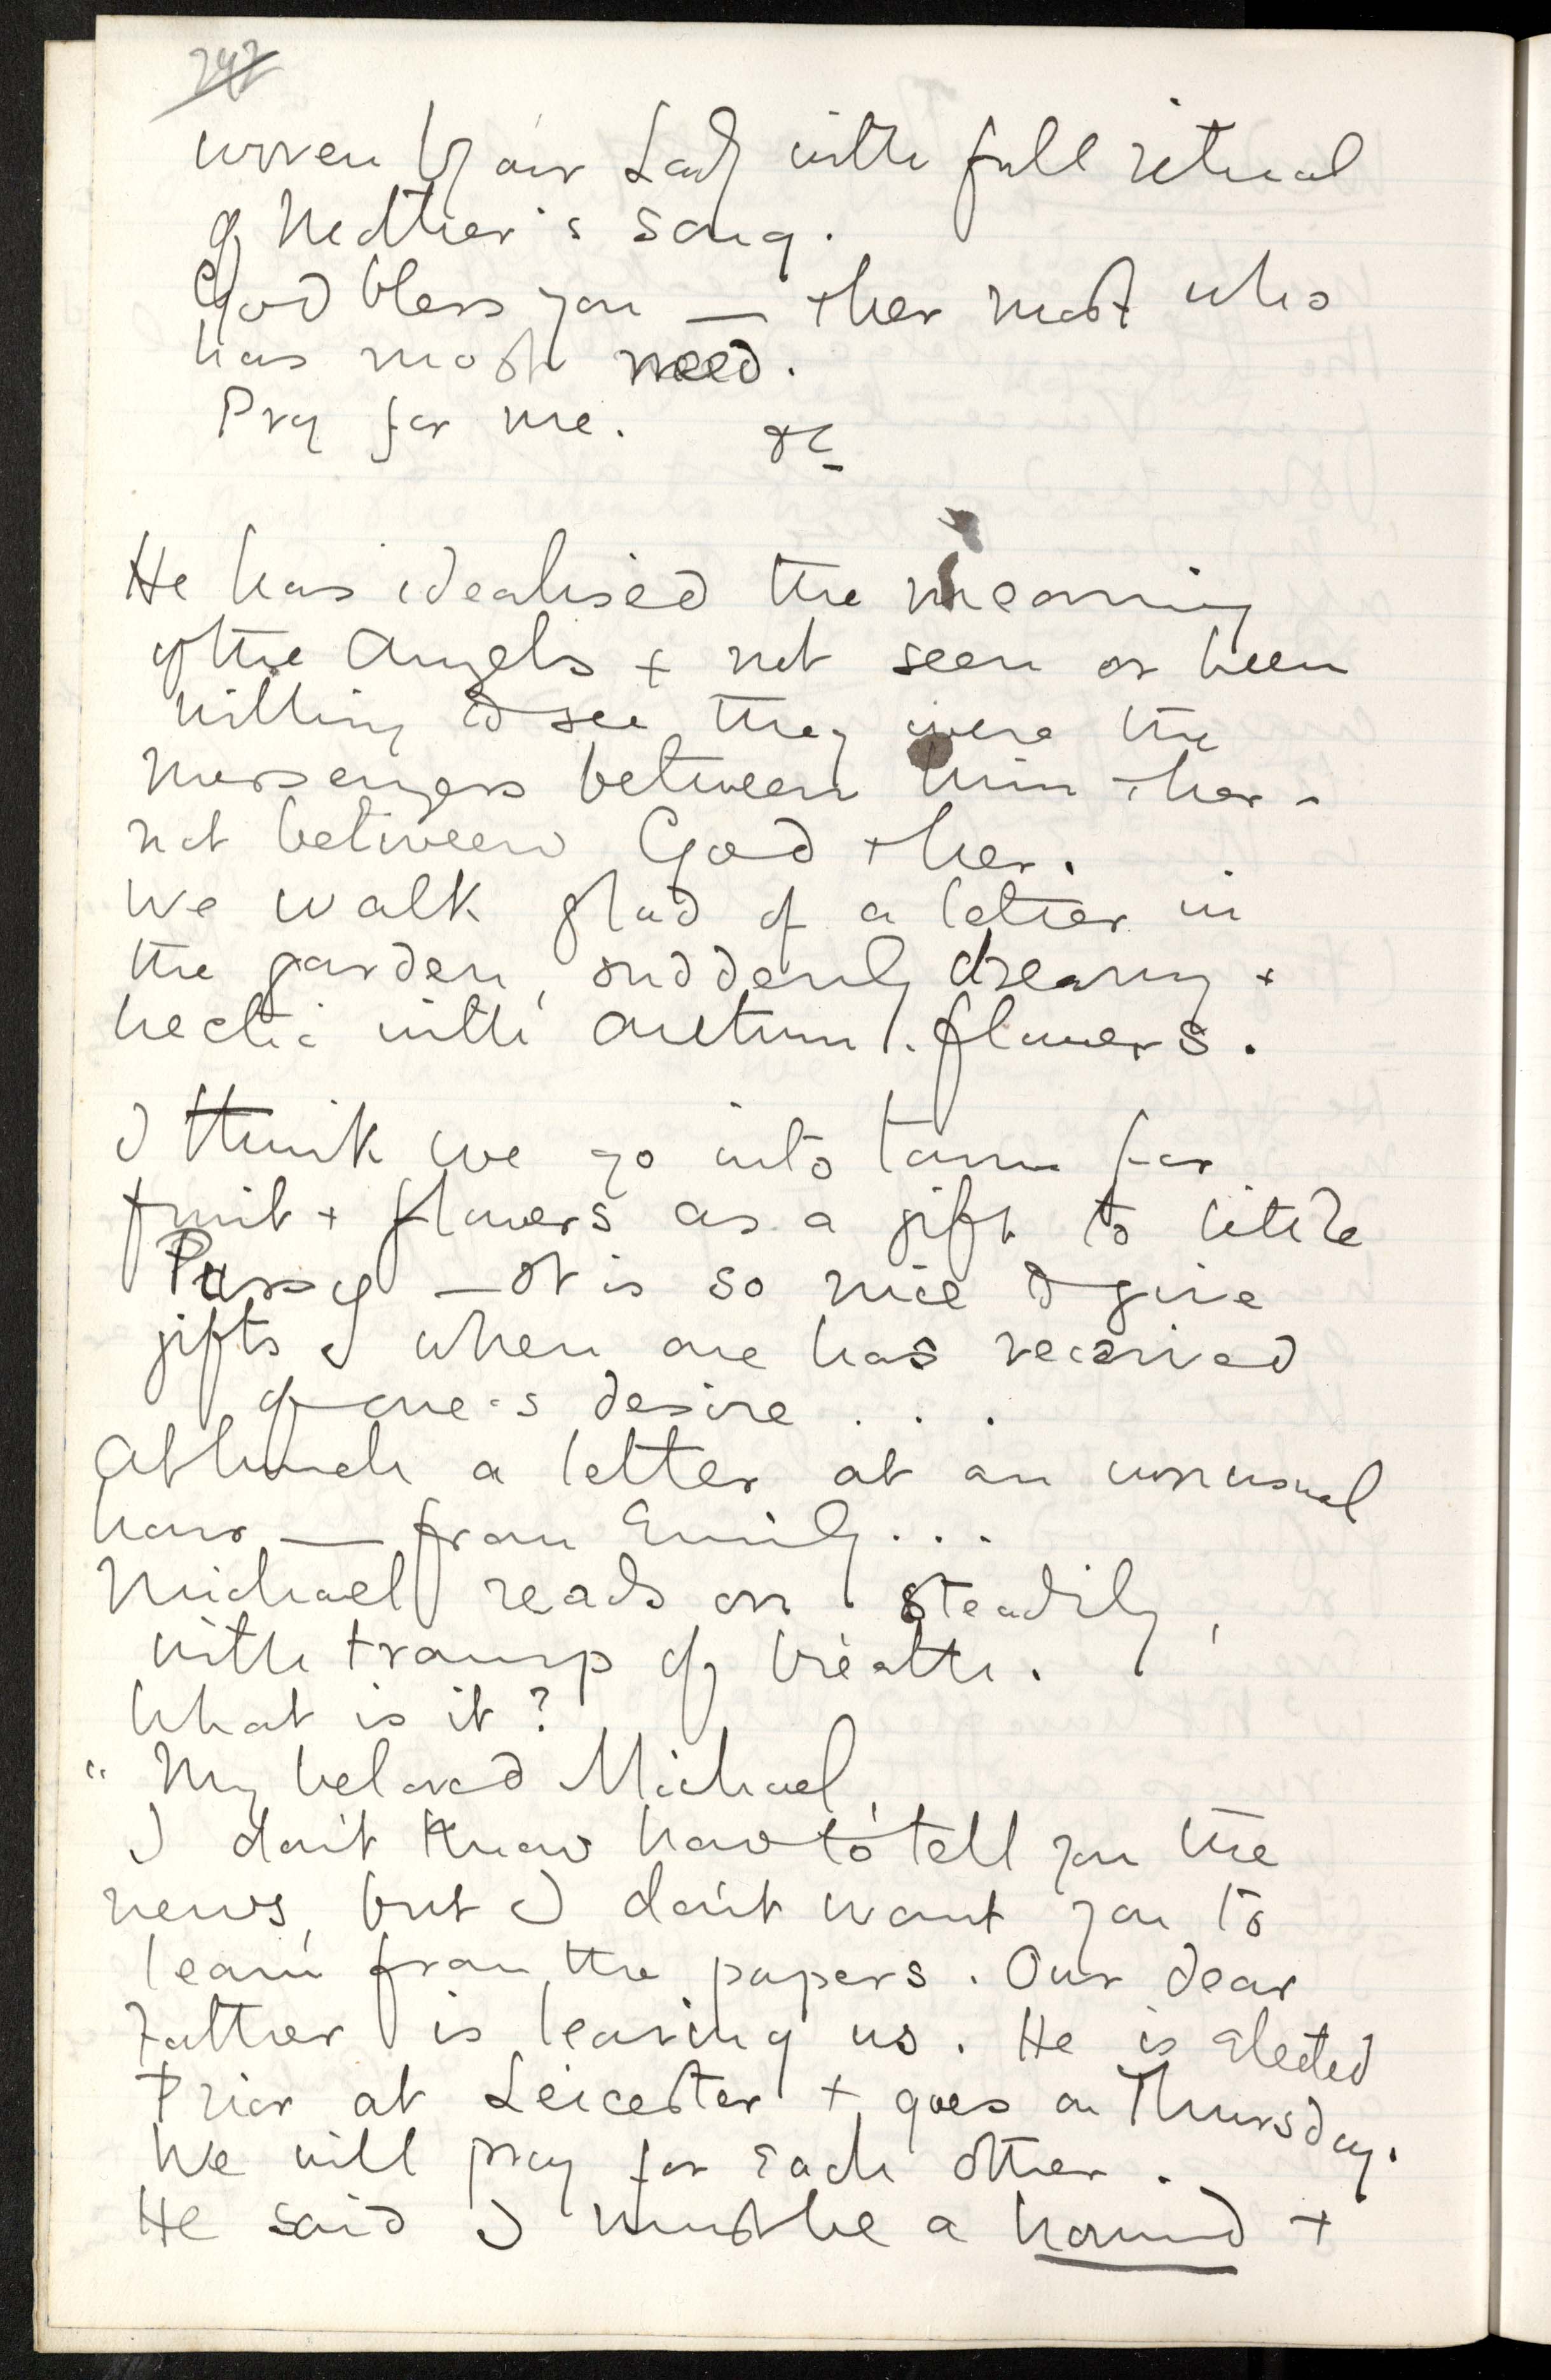 woven by our Lady with full ritual
of Mother's song.
God bless you — + her most who
has most need.
Pray for me. &c
He has idealised the meaning
of the Angels + not seen or been
willing to see they were the
messengers between him + her -
not between God + her.
We walk glad of a letter in
the garden, suddenly dreamy +
hectic with autumn-flowers.
I think we go into town for
fruit + flowers as a gift to little
Pussy — It is so nice to give
gifts when one has received
of one's desire . . .
At lunch a letter at an unusual
hour — from Emily . . .
Michael reads on steadily,
with tramp of breath.
What is it?
" My beloved Michael,
I don't know how to tell you the
news, but I don't want you to
learn from the papers. Our dear
Father is leaving us. He is Elected
Prior at Leicester + goes on Thursday.
We will pray for Each other.
He said I must be a hound +